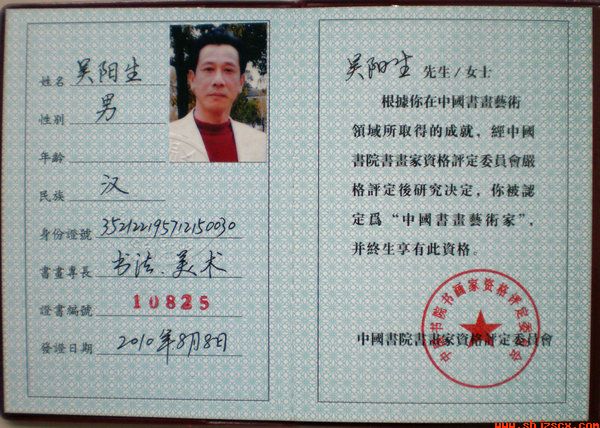 姓名 吴阳生
性別 男
年齡
民族 汉
身份證號 352122195712150030
書畫專長 书法、美术
證書編號 10825
發證日期 2010年8月8日
吴阳生 先生/女士
根據你在中國書畫藝術
領域所取得的成就，經中國
書院書畫家資格評定委員會嚴
格評定後研究决定，你被認
定爲“中國書畫藝術家”，
并終生享有此資格。
中國書院書畫家資格評定委員會
www.shjzscx.com